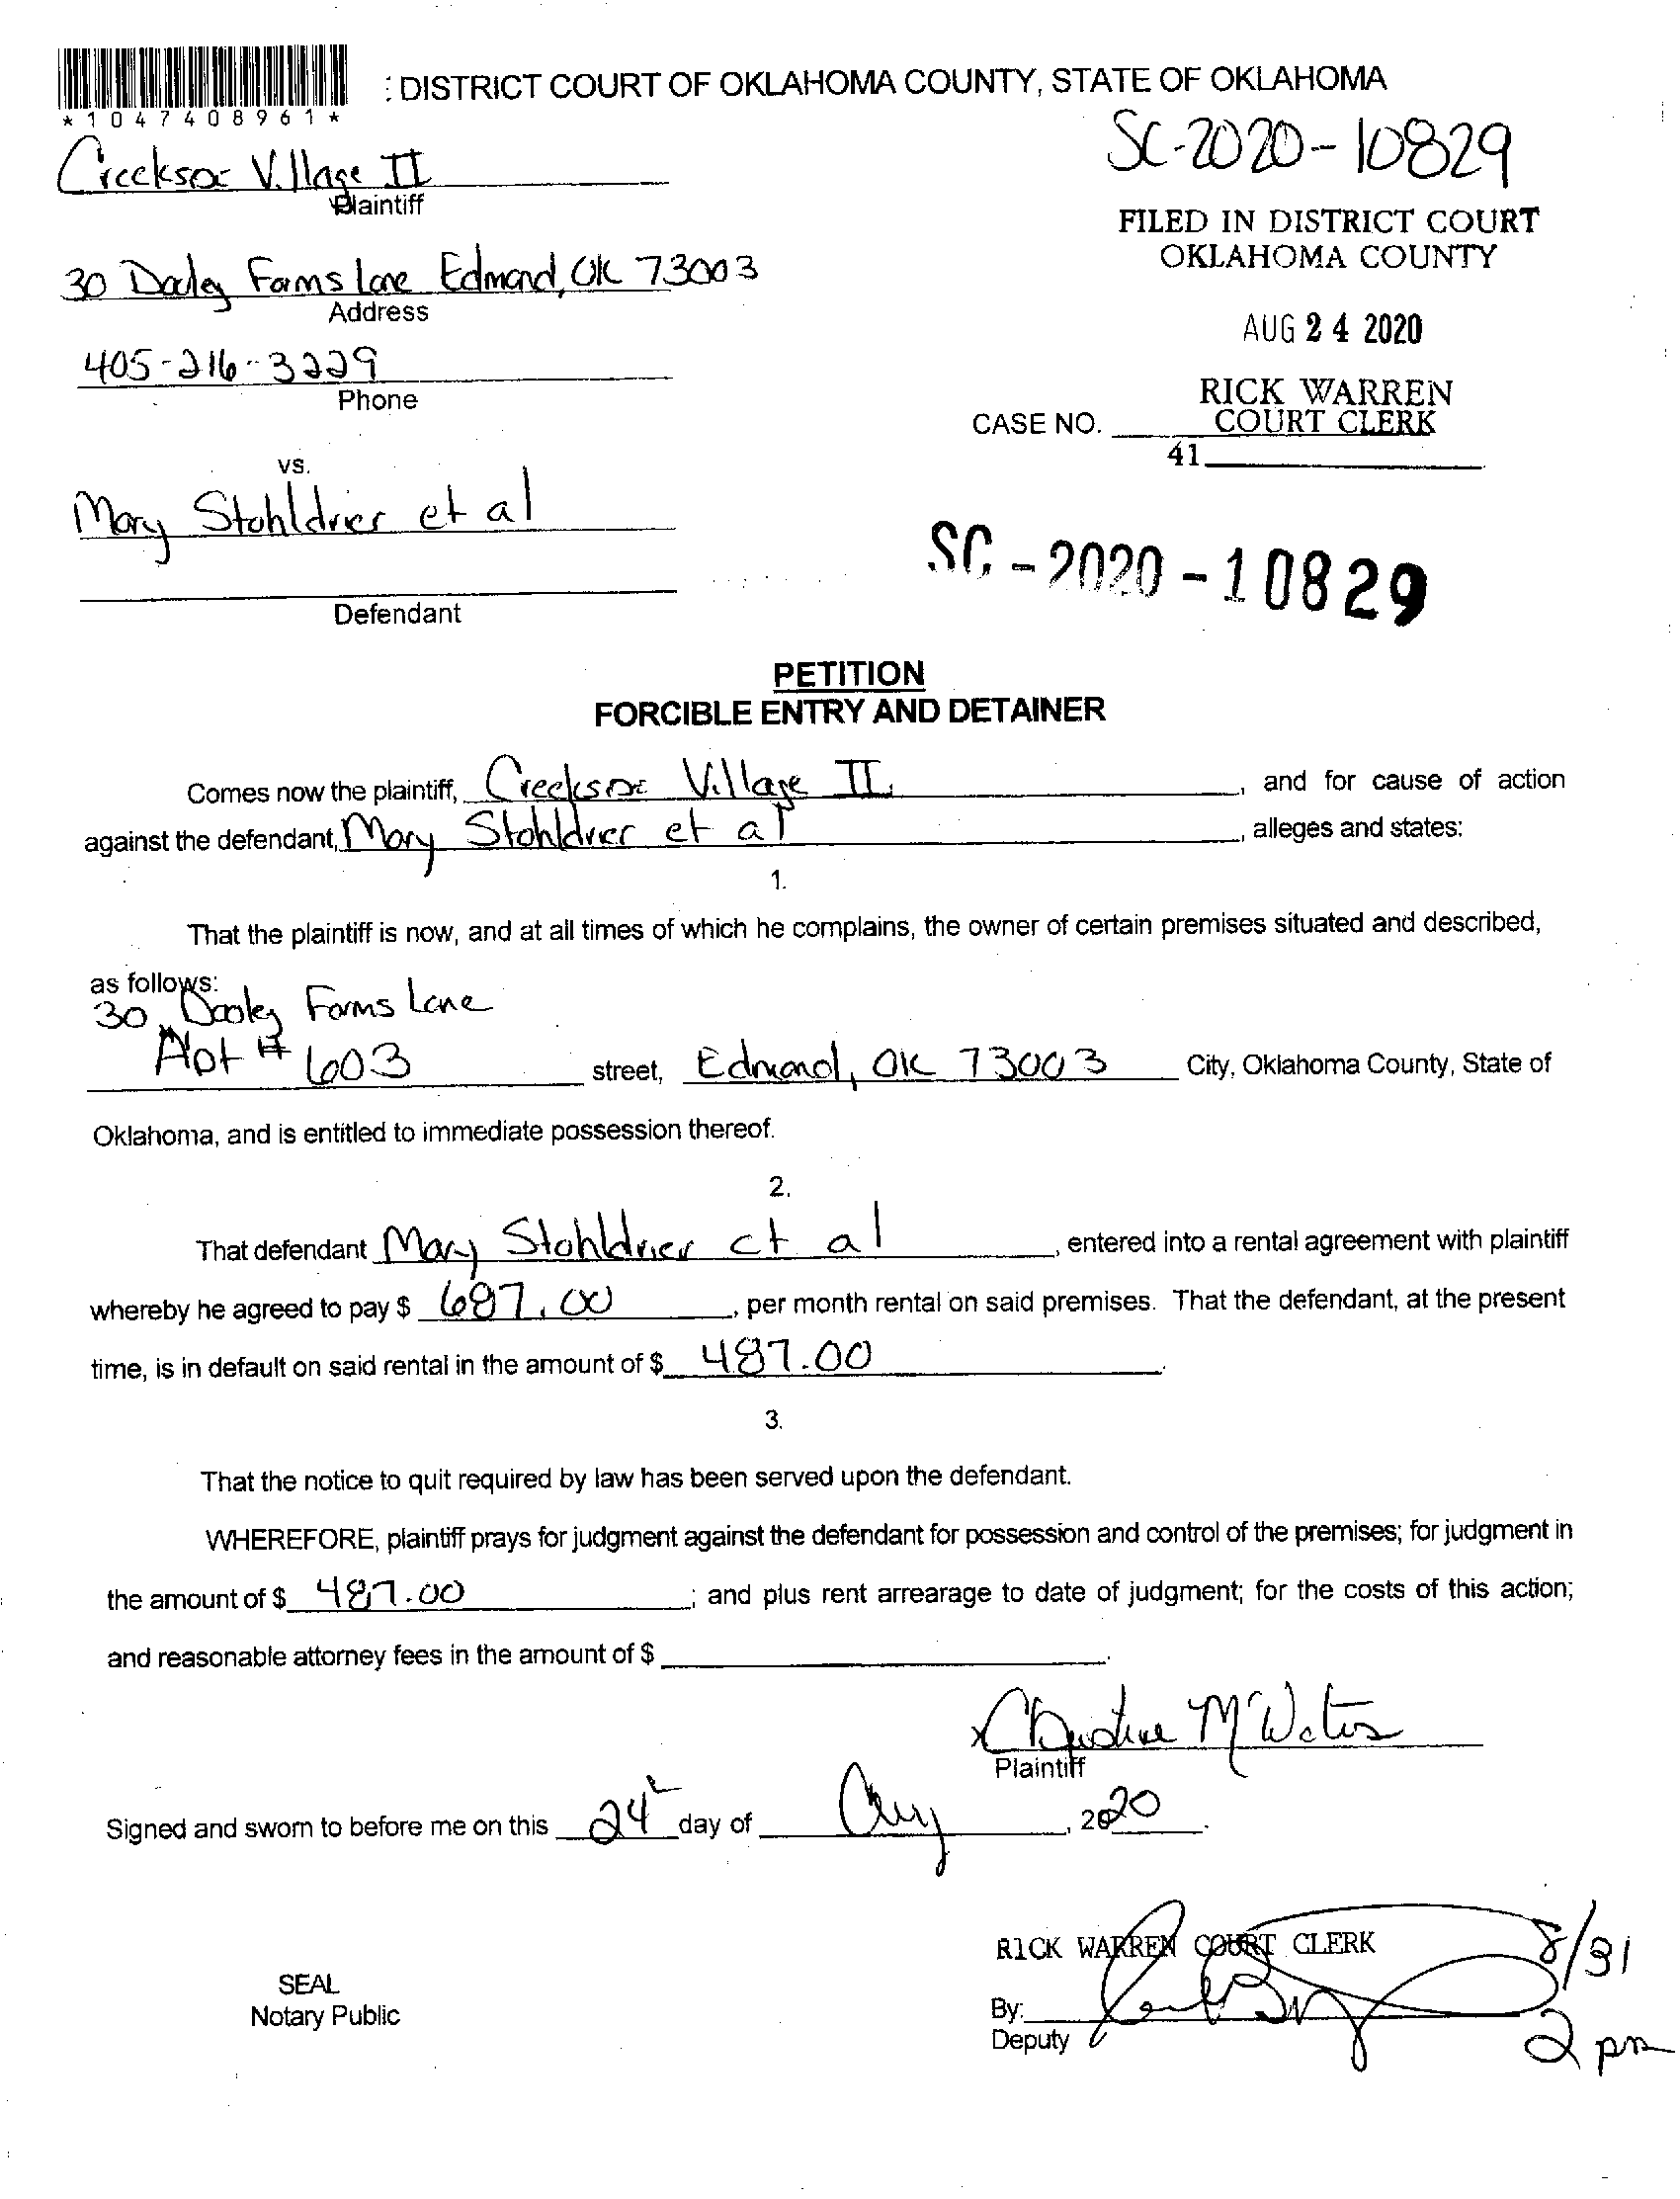 : DISTRICT COURT OF OKLAHOMA COUNTY, STATE OF OKLAHOMA
*1047408961*
SC-2020-10829
Creekside Village II
Plaintiff
FILED IN DISTRICT COURT
OKLAHOMA COUNTY
30 Dooley Farms Lane Edmond, OK 73003
Address
AUG 24 2020
405-216-3229
Phone
RICK WARREN
COURT CLERK
CASE NO.
41
vs.
Mary Stohldrier et al
SC-2020-10829
Defendant
PETITION
FORCIBLE ENTRY AND DETAINER
Comes now the plaintiff, Creekside Village II, and for cause of action
against the defendant, Mary Stohldrier et al, alleges and states:
1.
That the plaintiff is now, and at all times of which he complains, the owner of certain premises situated and described,
as follows:
30 Dooley Farms Lane
Apt # 603 street, Edmond, OK 73003 City, Oklahoma County, State of
Oklahoma, and is entitled to immediate possession thereof.
2.
That defendant Mary Stohldrier et al, entered into a rental agreement with plaintiff
whereby he agreed to pay $ 687.00, per month rental on said premises. That the defendant, at the present
time, is in default on said rental in the amount of $ 487.00.
3.
That the notice to quit required by law has been served upon the defendant.
WHEREFORE, plaintiff prays for judgment against the defendant for possession and control of the premises; for judgment in
the amount of $ 487.00; and plus rent arrearage to date of judgment; for the costs of this action;
and reasonable attorney fees in the amount of $
x Christine M Waters
Plaintiff
Signed and sworn to before me on this 24 day of Aug, 2020.
RICK WARREN COURT CLERK
8/31
SEAL
Notary Public
By:
Deputy
2 pm